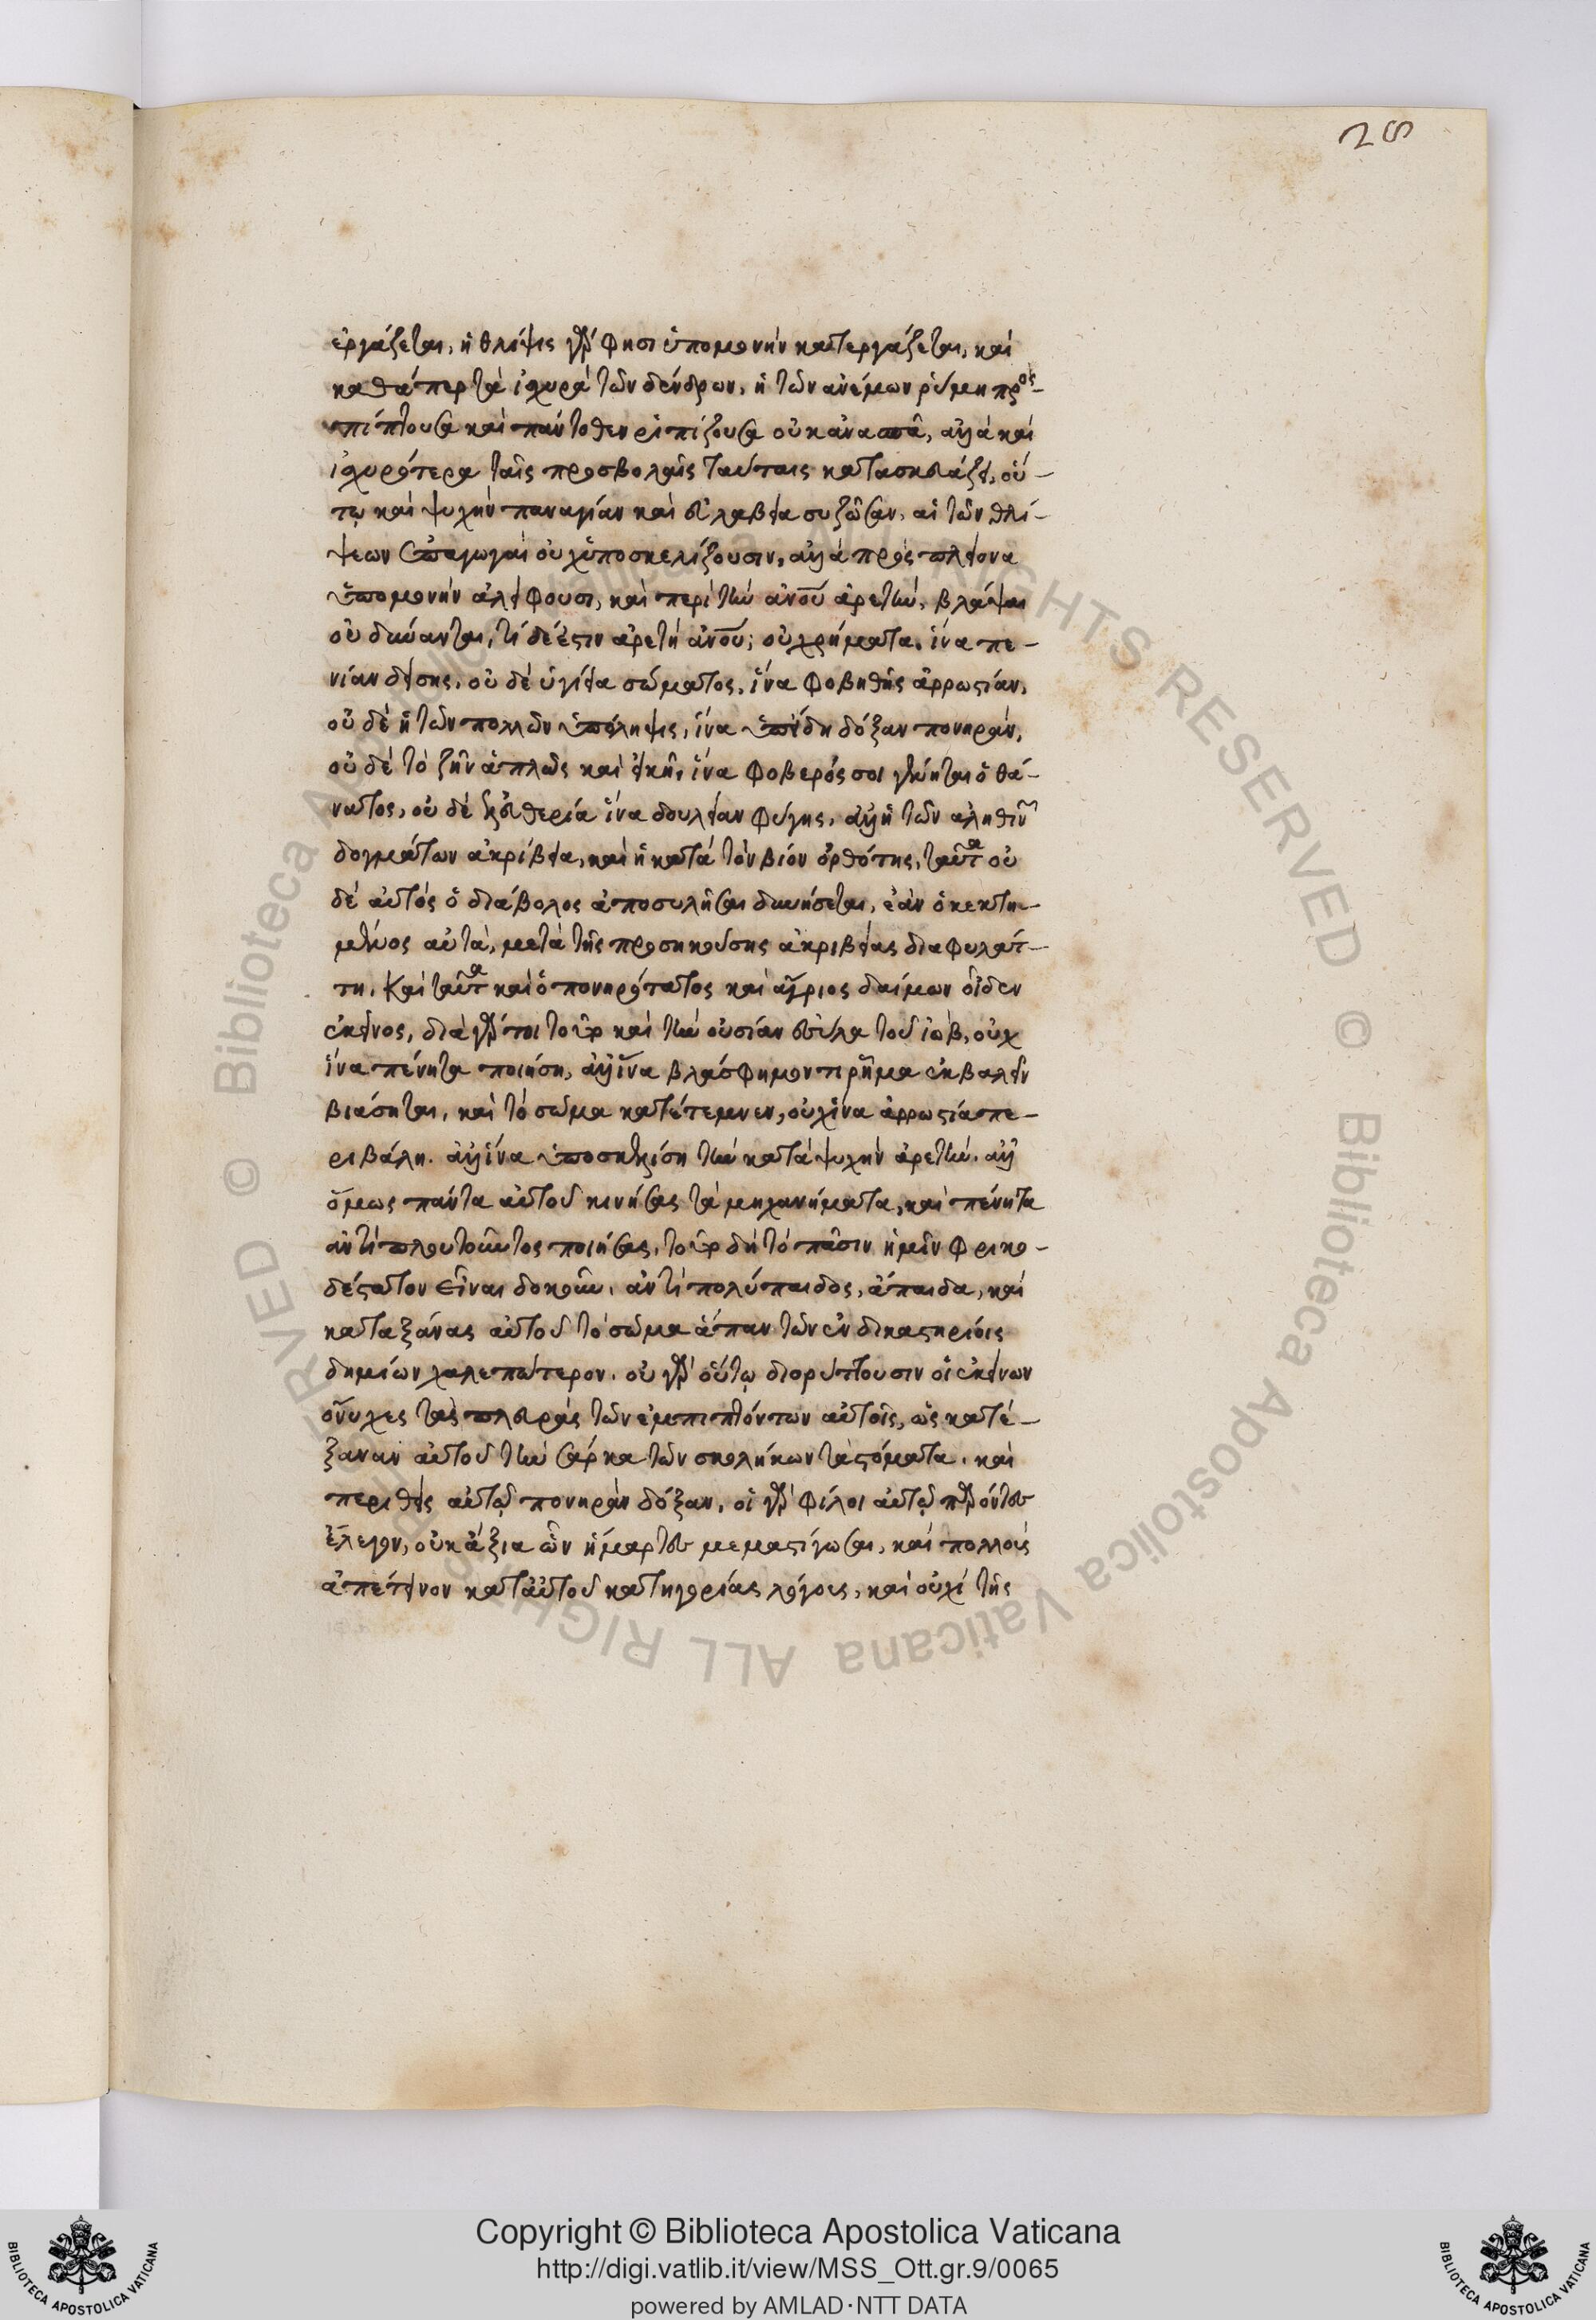 28
ἐργάζεται, ἡ θλίψις γὰρ φησὶ ὑπομονὴν κατεργάζεται, καὶ
καθάπερ τὰ ἰσχυρὰ τῶν δένδρων, ἡ τῶν ἀνέμων ῥύμη προς-
πίπτουσα καὶ πάντοθεν ῥιπίζουσα οὐκ ἀνασπᾶ, ἀλλὰ καὶ
ἰσχυρότερα ταῖς προσβολαῖς ταύταις κατασκευάζει, οὕ-
τω καὶ ψυχὴν παναγίαν καὶ εὐλαβεία συζῶσαν, αἱ τῶν θλί-
ψεων ἐπαγωγαὶ οὐχ ὑποσκελίζουσιν, ἀλλὰ πρὸς πλείονα
ὑπομονὴν ἀλείφουσι, καὶ περὶ τὴν ἀνου ἀρετὴν, βλάψαι
οὐ δύνανται, τί δέ ἐστιν ἀρετὴ ἀνου; οὐ χρήματα, ἵνα πε-
νίαν δείσης, οὐ δὲ ὑγίεια σώματος, ἵνα φοβηθῆς ἀρρωστίαν,
οὐ δὲ ἡ τῶν πολλῶν ὑπόληψις, ἵνα ὑπίδη δόξαν πονηράν,
οὐ δὲ τὸ ζῆν ἁπλῶς καὶ εἰκῆ, ἵνα φοβερός σοι γένηται ὁ θά-
νατος, οὐ δὲ ἐλευθερία ἵνα δουλείαν φύγης, ἀλλ' ἡ τῶν ἀληθινῶν
δογμάτων ἀκρίβεια, καὶ ἡ κατὰ τὸν βίον ὀρθότης, ταῦτα οὐ
δὲ αὐτὸς ὁ διάβολος ἀποσυλῆσαι δυνήσεται, ἐὰν ὁ κεκτη-
μένος αὐτὰ, μετὰ τῆς προσηκούσης ἀκριβείας διαφυλάτ-
τη. Καὶ ταῦτα καὶ ὁ πονηρότατος καὶ ἄγριος δαίμων οἶδεν
ἐκεῖνος, διὰ γάρ τοι τοῦτο καὶ τὴν οὐσίαν εἷλε τοῦ ἰώβ, οὐχ
ἵνα πένητα ποιήση, ἀλλ' ἵνα βλάσφημόν τι ῥῆμα ἐκβαλεῖν
βιάσηται, καὶ τὸ σῶμα κατέτεμνεν, οὐχ ἵνα ἀρρωστία πε-
ριβάλη. ἀλλ' ἵνα ὑποσκελίση τὴν κατὰ ψυχὴν ἀρετὴν. ἀλλ'
ὅμως πάντα αὐτοῦ κινήσας τὰ μηχανήματα, καὶ πένητα
ἀντὶ πλουτοῦντος ποιήσας, τοῦτο δὴ τὸ πᾶσιν ἡμῖν φρικω-
δέστατον εἶναι δοκοῦν, ἀντὶ πολύπαιδος, ἄπαιδα, καὶ
καταξάνας αὐτοῦ τὸ σῶμα ἅπαν τῶν ἐν δικαστηρίοις
δημίων χαλεπώτερον. οὐ γὰρ οὕτω διορύττουσιν οἱ ἐκείνων
ὄνυχες τὰς πλευρὰς τῶν ἐμπιπτόντων αὐτοῖς, ὡς κατέ-
ξαναν αὐτοῦ τὴν σάρκα τῶν σκωλήκων τὰ στόματα. καὶ
περιθεὶς αὐτῷ πονηρὰν δόξαν, οἱ γὰρ φίλοι αὐτῷ παρόντες
ἔλεγον, οὐκ ἄξια ὧν ἡμάρτες μεμαστίγωσαι, καὶ πολλοὺς
ἀπέτεινον κατ' αὐτοῦ κατηγορίας λόγους, καὶ οὐχὶ τῆς
Copyright © Biblioteca Apostolica Vaticana
http://digi.vatlib.it/view/MSS_Ott.gr.9/0065
powered by AMLAD·NTT DATA